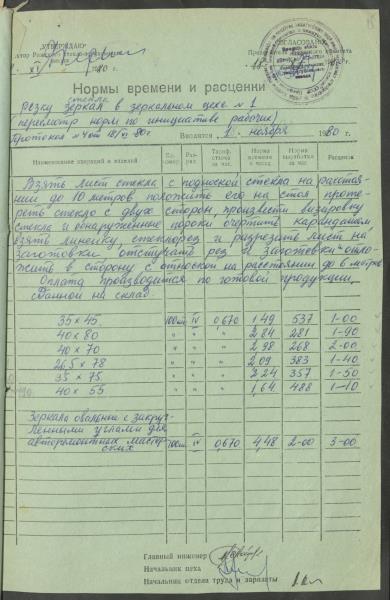 УТВЕРЖДАЮ
СОГЛАСОВАНО
XI 1980
Нормы времени и расценки
стекла
резку зеркал в зеркальном цехе № 1
пересмотр норм по инициативе рабочих)
Протокол № 4 от 18/VI 80г
Вводится 1 ноября 1980 г.
Наименование операций и изделий
Ед. измер.
Раз-ряд
Тариф. ставка в час
Норма времени в часах
Норма выработки за час.
Расценки
Взять лист стекла с подноской стекла на расстоя-
нии до 10 метров положить его на стол проте-
реть стекло с двух сторон, произвести визировку
стекла и обнаруженные пороки очертить карандашом
взять линейку, стеклорез и разрезать лист на
заготовки, отстукать рез и заготовки отло-
жить в сторону с отноской на расстоянии до 6 метров
Оплата производится по готовой продукции,
сданной на склад.
35 х 45 100шт IV 0,670 1,49 537 1-00
40 х 80 " " " 2,84 281 1-90
40 х 70 " " " 2,98 268 2-00
26,5 х 78 " " " 2,09 383 1-40
35 х 75 " " " 2,24 357 1-50
40 х 55 " " " 1,64 488 1-10
Зеркала овальные с закруг-
ленными углами для
авторемонтных мастер-
ских 100шт IV 0,670 4,48 2-00 3-00
Главный инженер
Начальник цеха
Начальник отдела труда и зарплаты